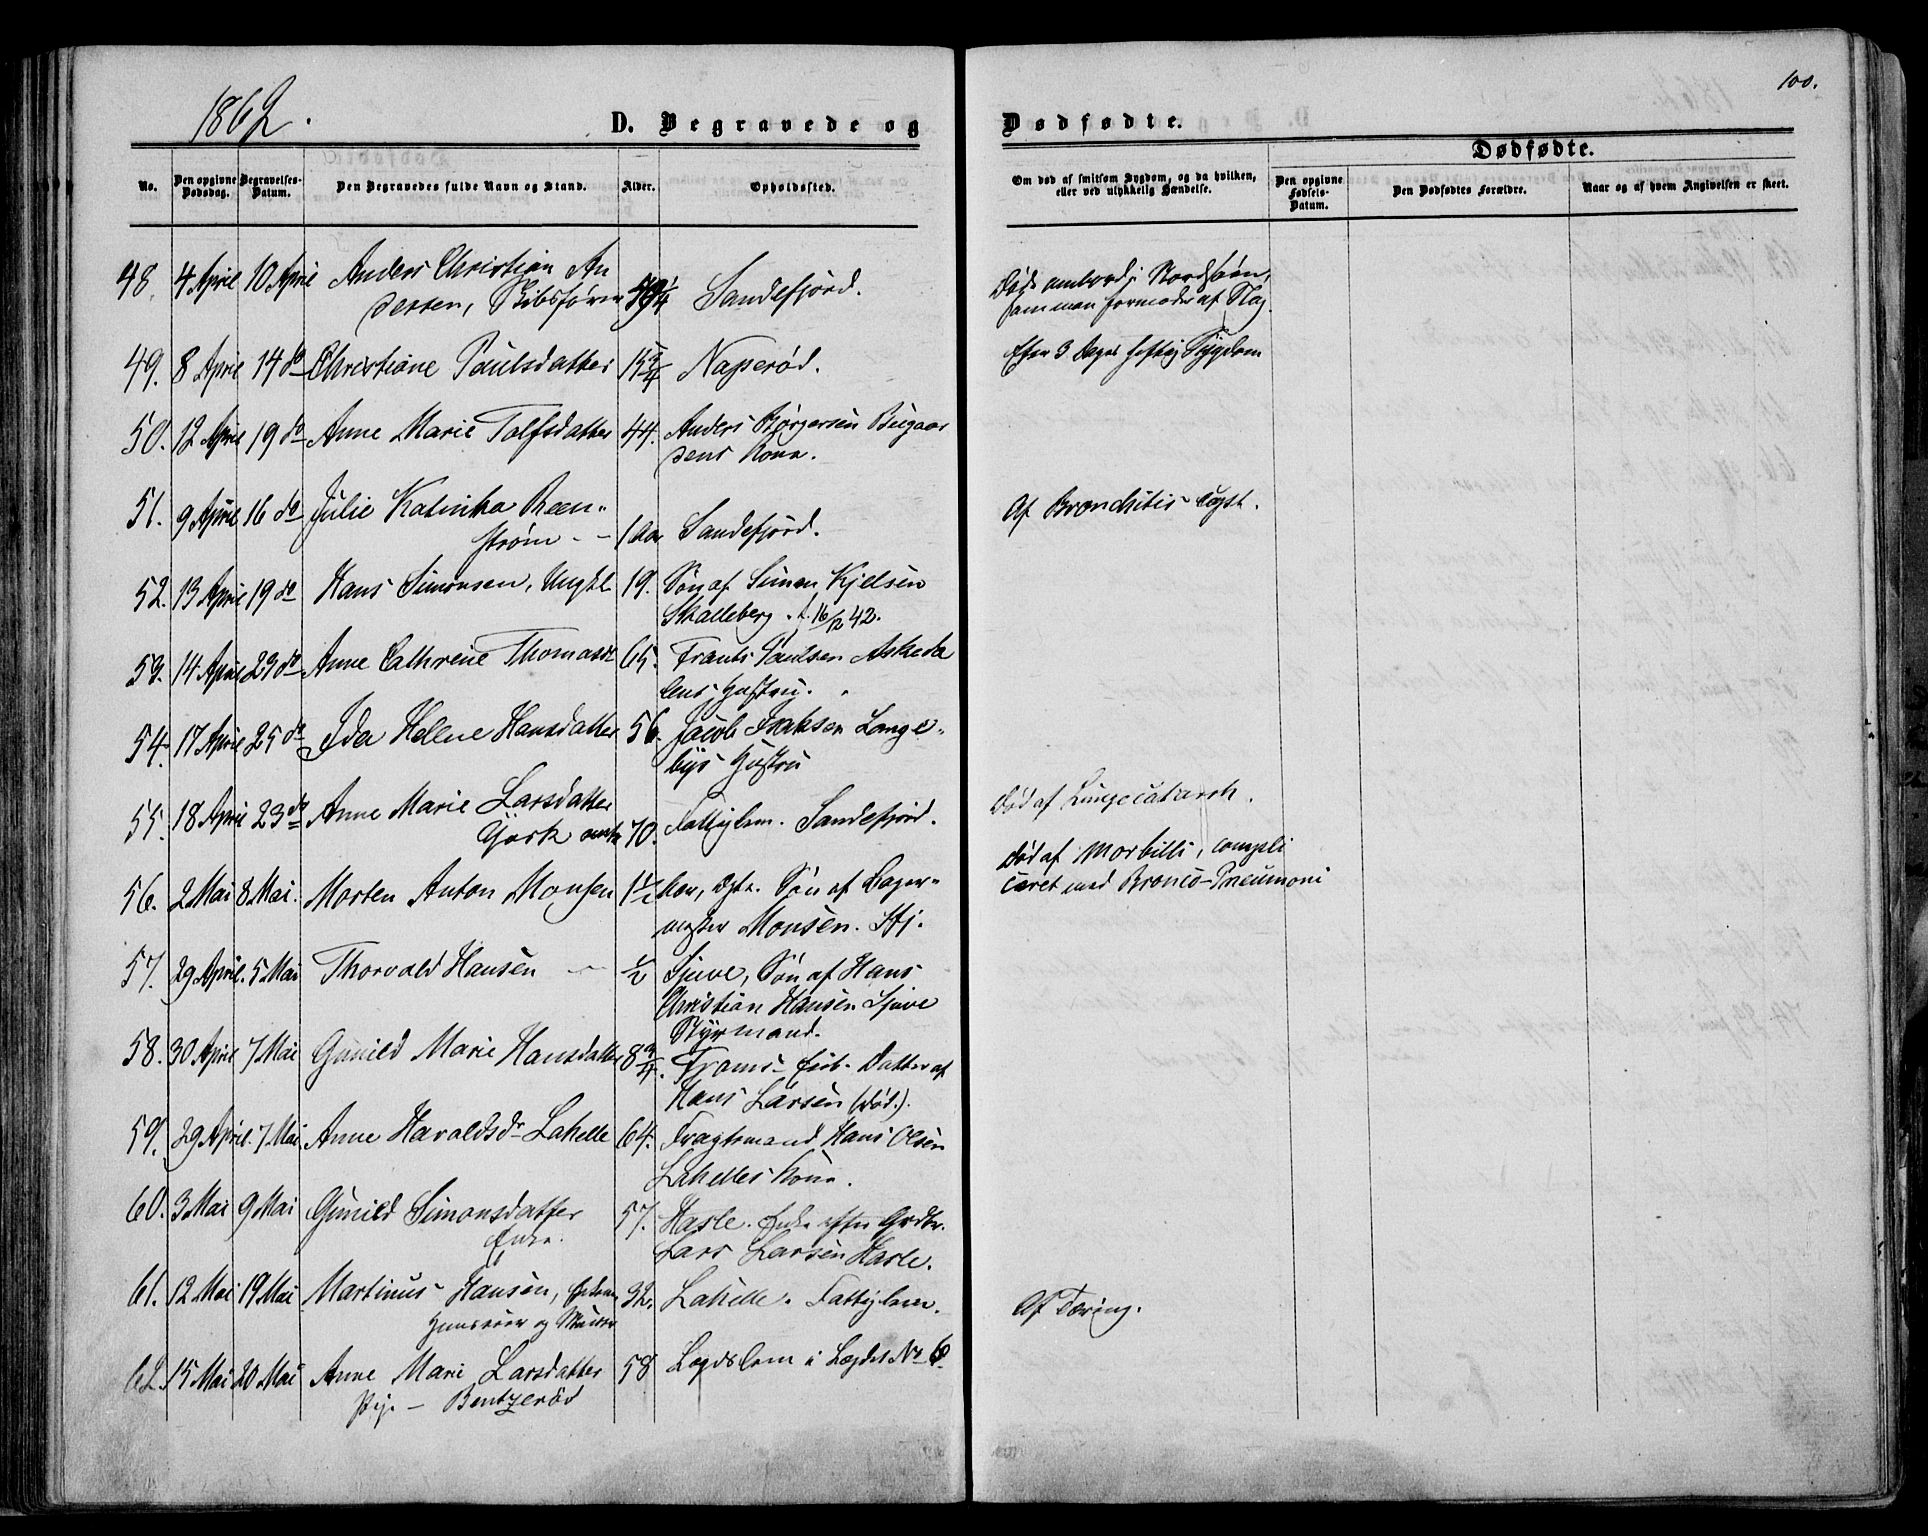 1862.
100.
D. Begravede og Dødfødte.
Dødfødte.
No.
Den opgivne Dødsdag.
Begravelses-Datum.
Den Begravedes fulde Navn og Stand.
Alder.
Opholdssted.
Om død af smitsom Sygdom, og da hvilken,
eller ved ulykkelig Hændelse.
Den opgivne Fødsels-Datum.
Den Dødfødtes Forældre.
Naar og af hvem Angivelsen er skeet.
48. 4 April 10 April Anders Christian An
dersen, Skibsfører Sandefjord.
Døde ombord i Nordsøen,
som man formoder af Slag.
49. 8 April 14 do Christiane Paulsdatter 15 3/4 Naperød.
Efter 3 Dages heftig Sygdom
50. 12 April 19 do Anne Marie Tolfsdatter 44. Anders Børgersen Bugaar
dens Kone.
51. 9 April 16 do Julie Katinka
strøm - - 1 Aar Sandefjord.
Af Bronchitis
52. 13 April 19 do Hans Simonsen, Ungkl 19. Søn af Simon Kjelsen
Skalleberg. f. 16/12 42.
53. 14 April 23 do Anne Cathrine Thomasd 65. Frants Paulsen Askeda
lens Hustru.
54. 17 April 25 do Ida Helene Hansdatter 56. Jacob Isaksen Lange-
byes Hustru
55. 18 April 23 do Anne Marie Larsdatter
70. Fattiglem. Sandefjord.
Død af Lungecatarrh.
56. 2 Mai 8 Mai. Morten Anton Monsen 1 1/2 Aar, ægte Søn af
Monsen. Hj.
Død af Morbilli, compli
ceret med Bronco-Pneumoni
57. 29 April. 5 Mai Thorvald Hansen - 1/2 Sjuve, Søn af Hans
Christian Hansen Sjuve
Styrmand.
58. 30 April 7 Mai Gunild Marie Hansdatter 8 3/4. Framnæs - Datter af
Hans Larsen (død.).
59. 29 April. 7 Mai Anne Haraldsdr Lahelle 64. Fragtemand Hans Olsen
Lahelles Kone.
60. 3 Mai 9 Mai Gunild Simonsdatter 57. Hasle. Enke efter Grdbr.
Enke. Lars Larsen Hasle.
61. 12 Mai 19 Mai Martinus Hansen, 32. Lahelle. Fattiglem.
og
Af Tæring.
62. 15 Mai 20 Mai Anne Marie Larsdatter 58 Lægdslem i Lægdet No 6.
Pige - Bentzerød